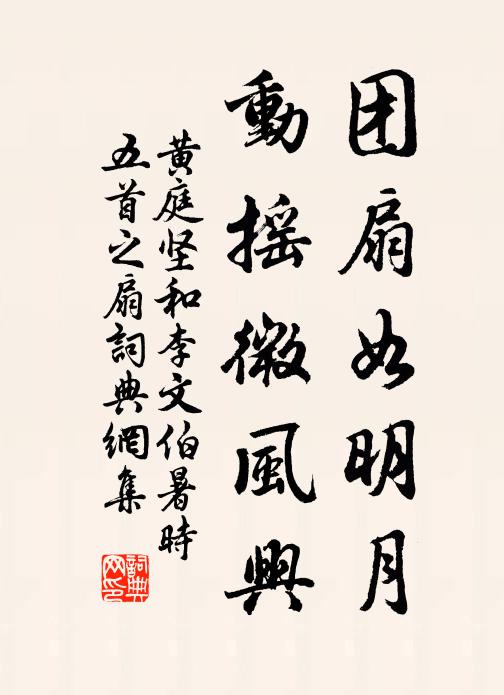 团扇如明月
動摇微風興
黄庭坚和李文伯暑時
五首之扇詞典網集
詞典网印